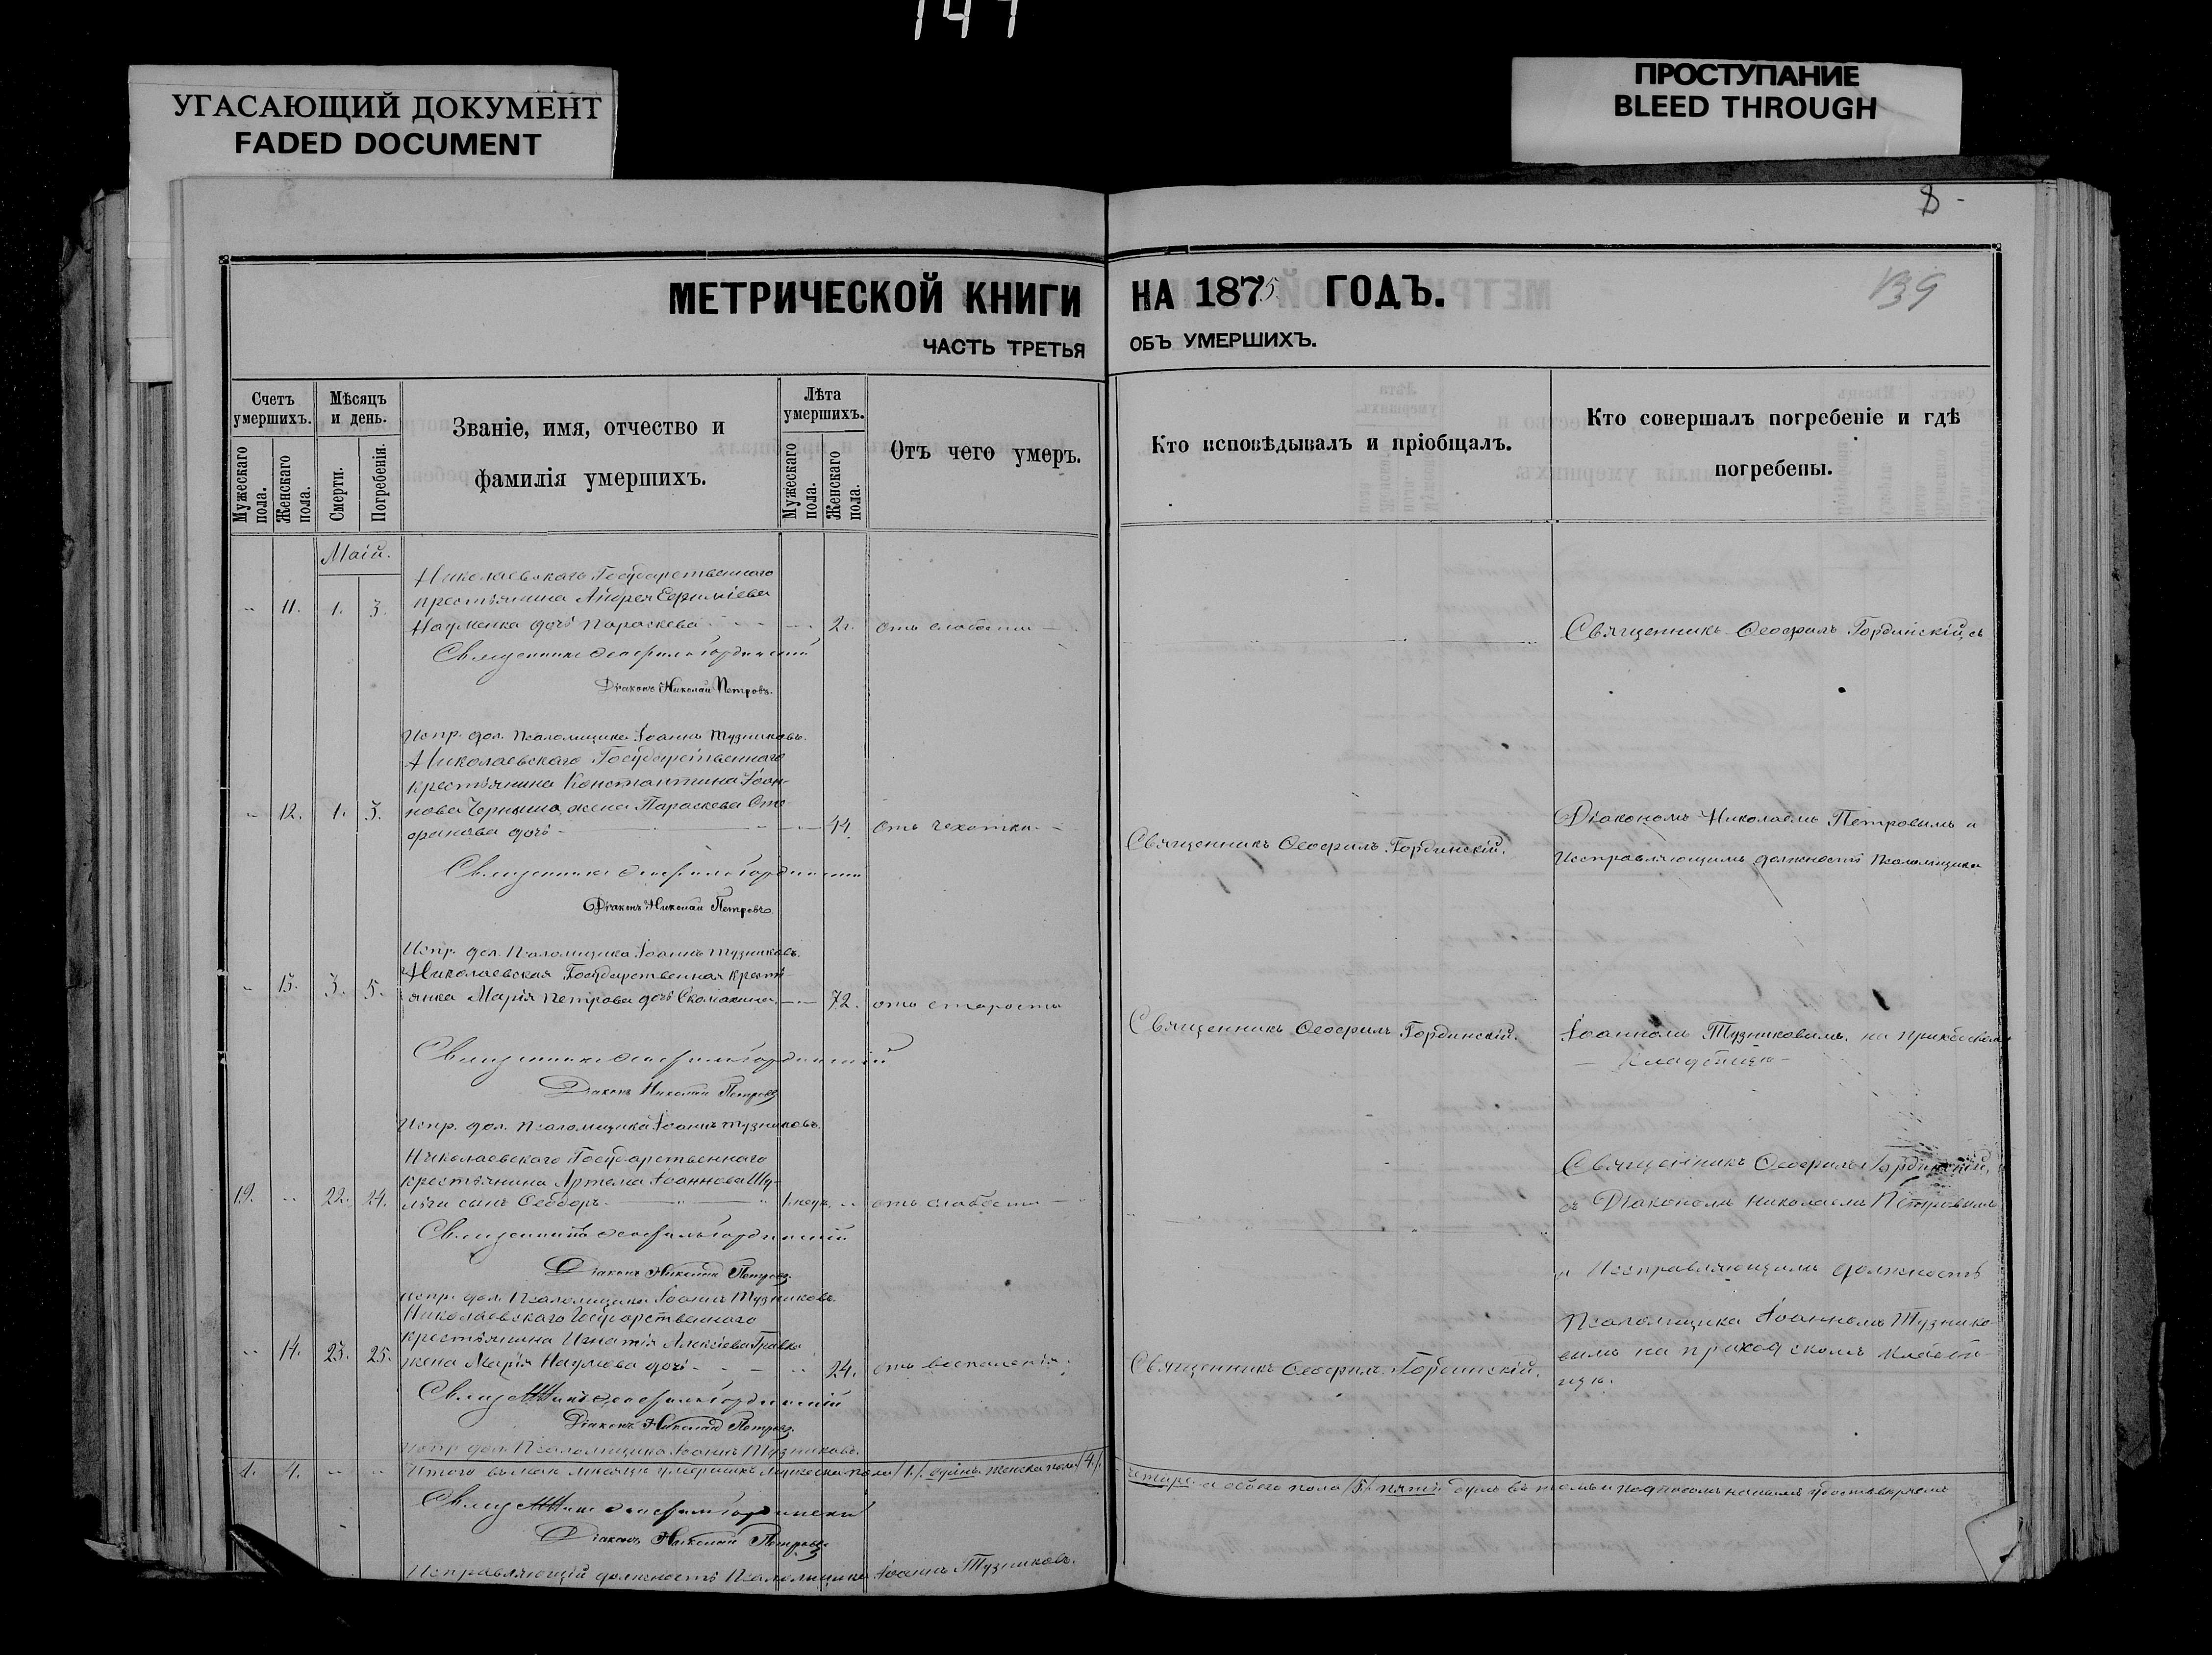 УГАСАЮЩИЙ ДОКУМЕНТ
FADED DOCUMENT
ПРОСТУПАНИЕ
BLEED THROUGH
8
139
МЕТРИЧЕСКОЙ КНИГИ НА 1875 ГОДЪ.
ЧАСТЬ ТРЕТЬЯ ОБЪ УМЕРШИХЪ.
Счетъ умершихъ.
Мужескаго пола.
Женскаго пола.
Мѣсяцъ и день.
Смерти.
Погребенія.
Званіе, имя, отчество и
фамилія умершихъ.
Лѣта умершихъ.
Мужескаго пола.
Женскаго пола.
Отъ чего умеръ.
Кто исповѣдывалъ и пріобщалъ.
Кто совершалъ погребеніе и гдѣ
погребены.
Маій.
Николаевскаго Государственнаго
крестьянина Андрея Ефиміева
11. 1. 3. Науменка дочь Параскева 2г. отъ слабости
Священникъ Ѳеофилъ Гординскій съ
Священникъ Ѳеофилъ Гординскій
Діаконъ Николай Петровъ.
Испр. дол. Псаломщика Іоаннъ Тузниковъ.
Николаевскаго Государственнаго
крестьянина Константина Іоан-
12. 1. 3. нова жена Параскева Сте-
фанова дочь 44 отъ чахотки
Священникъ Ѳеофилъ Гординскій.
Діакономъ Николаемъ Петровымъ и
Исправляющимъ должность Псаломщика
Священникъ Ѳеофилъ Гординскій
Діаконъ Николай Петровъ.
Испр. дол. Псаломщика Іоаннъ Тузниковъ.
Николаевская Государственная кресть-
13. 3. 5. янка Марія Петрова дочь 72. отъ старости
Священникъ Ѳеофилъ Гординскій.
Іоанномъ Тузниковымъ на приходскомъ
Кладбищѣ
Священникъ Ѳеофилъ Гординскій
Діаконъ Николай Петровъ
Испр. дол. Псаломщика Іоаннъ Тузниковъ.
Николаевскаго Государственнаго
крестьянина Артема Іоаннова Шу-
19. 22. 24. сынъ Ѳеодоръ 1 нед. отъ слабости
Священникъ Ѳеофилъ Гординскій,
съ Діакономъ Николаемъ Петровымъ
и Исправляющимъ должность
Псаломщика Іоанномъ Тузнико-
вымъ на приходскомъ кладби-
щѣ.
Священникъ Ѳеофилъ Гординскій
Діаконъ Николай Петровъ.
Испр. дол. Псаломщика Іоаннъ Тузниковъ.
Николаевскаго Государственнаго
крестьянина Игнатія Алексіева
14. 23. 25. жена Марія Наумова дочь 24. отъ воспаленія.
Священникъ Ѳеофилъ Гординскій.
Священникъ Ѳеофилъ Гординскій
Діаконъ Николай Петровъ.
Испр. дол. Псаломщика Іоаннъ Тузниковъ.
1. 4. Итого въ маѣ мѣсяцѣ умершихъ мужеска пола /1/ одинъ женска пола /4/
четыре а обоего пола /5/ пять душъ въ томъ и подписомъ нашимъ удостовѣряемъ
Священникъ Ѳеофилъ Гординскій
Діаконъ Николай Петровъ
Исправляющій должность Псаломщика Іоаннъ Тузниковъ.